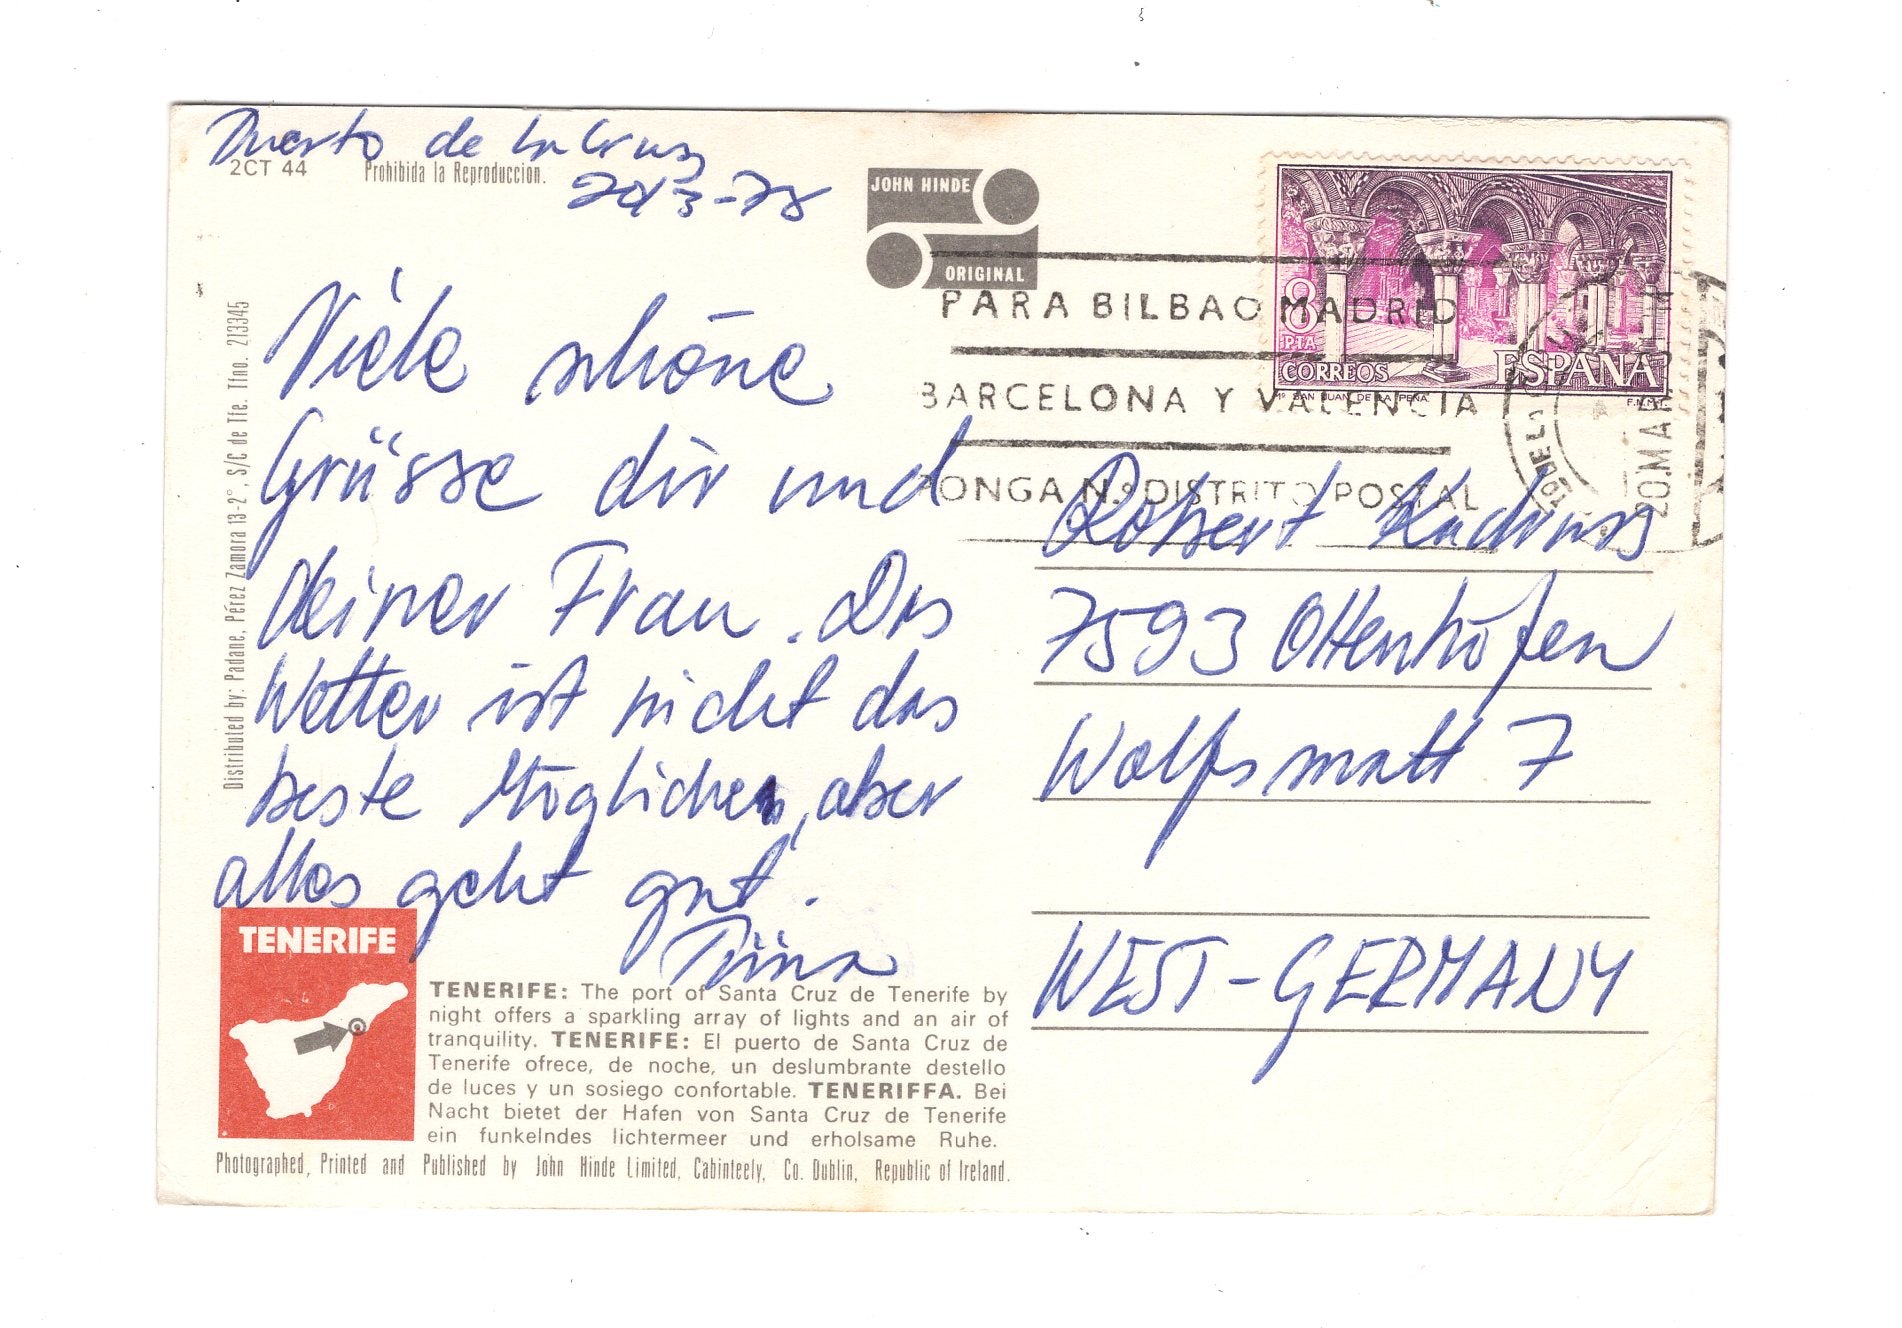 Puerto de la Cruz
20/3-78
2CT 44 Prohibida la Reproduccion.
JOHN HINDE
ORIGINAL
Distributed by: Padane, Pérez Zamora 13-2°, S/C de Tfe. Tfno. 213345
Viele schöne
Grüsse dir und
deiner Frau. Das
Wetter ist nicht das
beste Möglichen, aber
alles geht gut.
Tiina
8
PTA
CORREOS
ESPAÑA
Mº SAN JUAN DE LA PEÑA
F.N.M.T.
PARA BILBAO MADRID
BARCELONA Y VALENCIA
PONGA N.º DISTRITO POSTAL
20.MAR
Robert
7593 Ottenhöfen
Wolfsmatt 7
WEST-GERMANY
TENERIFE
TENERIFE: The port of Santa Cruz de Tenerife by
night offers a sparkling array of lights and an air of
tranquility. TENERIFE: El puerto de Santa Cruz de
Tenerife ofrece, de noche, un deslumbrante destello
de luces y un sosiego confortable. TENERIFFA. Bei
Nacht bietet der Hafen von Santa Cruz de Tenerife
ein funkelndes lichtermeer und erholsame Ruhe.
Photographed, Printed and Published by John Hinde Limited, Cabinteely, Co. Dublin, Republic of Ireland.